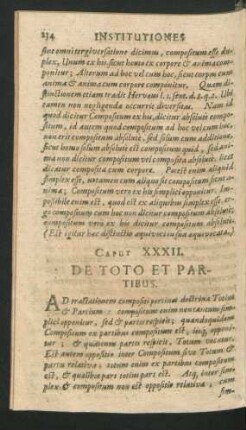 234 INSTITUTIONES
sine omni tergiversatione dicimus, compositum esse du-
plex, Unum ex his, sicut homo ex corpore & anima com-
ponitur; Alterum ad hoc vel cum hoc, sicut corpus cum
anima & anima cum corpore componitur. Quam di-
stinctionem etiam tradit Hervæus
tamen non negligenda occurrit diversitas. Nam id
quod dicitur Compositum ex his, dicitur absolute compo-
situm, id autem quod compositum ad hoc vel cum hoc,
non erit compositum absolute, sed solum cum addito:
sicut homo solum absolute est compositum quid, sed ani-
ma non dicitur compositum vel composita absolute, licet
dicatur composita cum corpore. Potest enim aliquid
simplex esse, & tamen cum aliquo sit compositum sicut a-
nima; Compositum vero ex his simplici opponitur. Im-
possibile enim est, quod est ex aliquibus simplex esse. er-
go compositum cum hoc non dicitur compositum absolu-
te, compositum vero ex his dicitur compositum absolute.
(Est igitur hæc distinctio æquivoci in sua æquivocata.)
CAPUT XXXII.
DE TOTO ET PAR-
TIBUS.
AD tractationem compositi pertinet doctrina Totius
& Partium: compositum enim non tantum sim-
plici opponitur, sed & partes respicit; quandoquidem
Compositum ex partibus compositum est, iisq, opponi-
tur; & quatenus partes respicit, Totum vocatur.
Est autem oppositio inter Compositum sive Totum &
partes relativa: totum enim ex partibus compositum
est, & quælibet pars totius pars est. Atq, inter sim-
plex & compositum non est oppositio relativa, cum
sim-